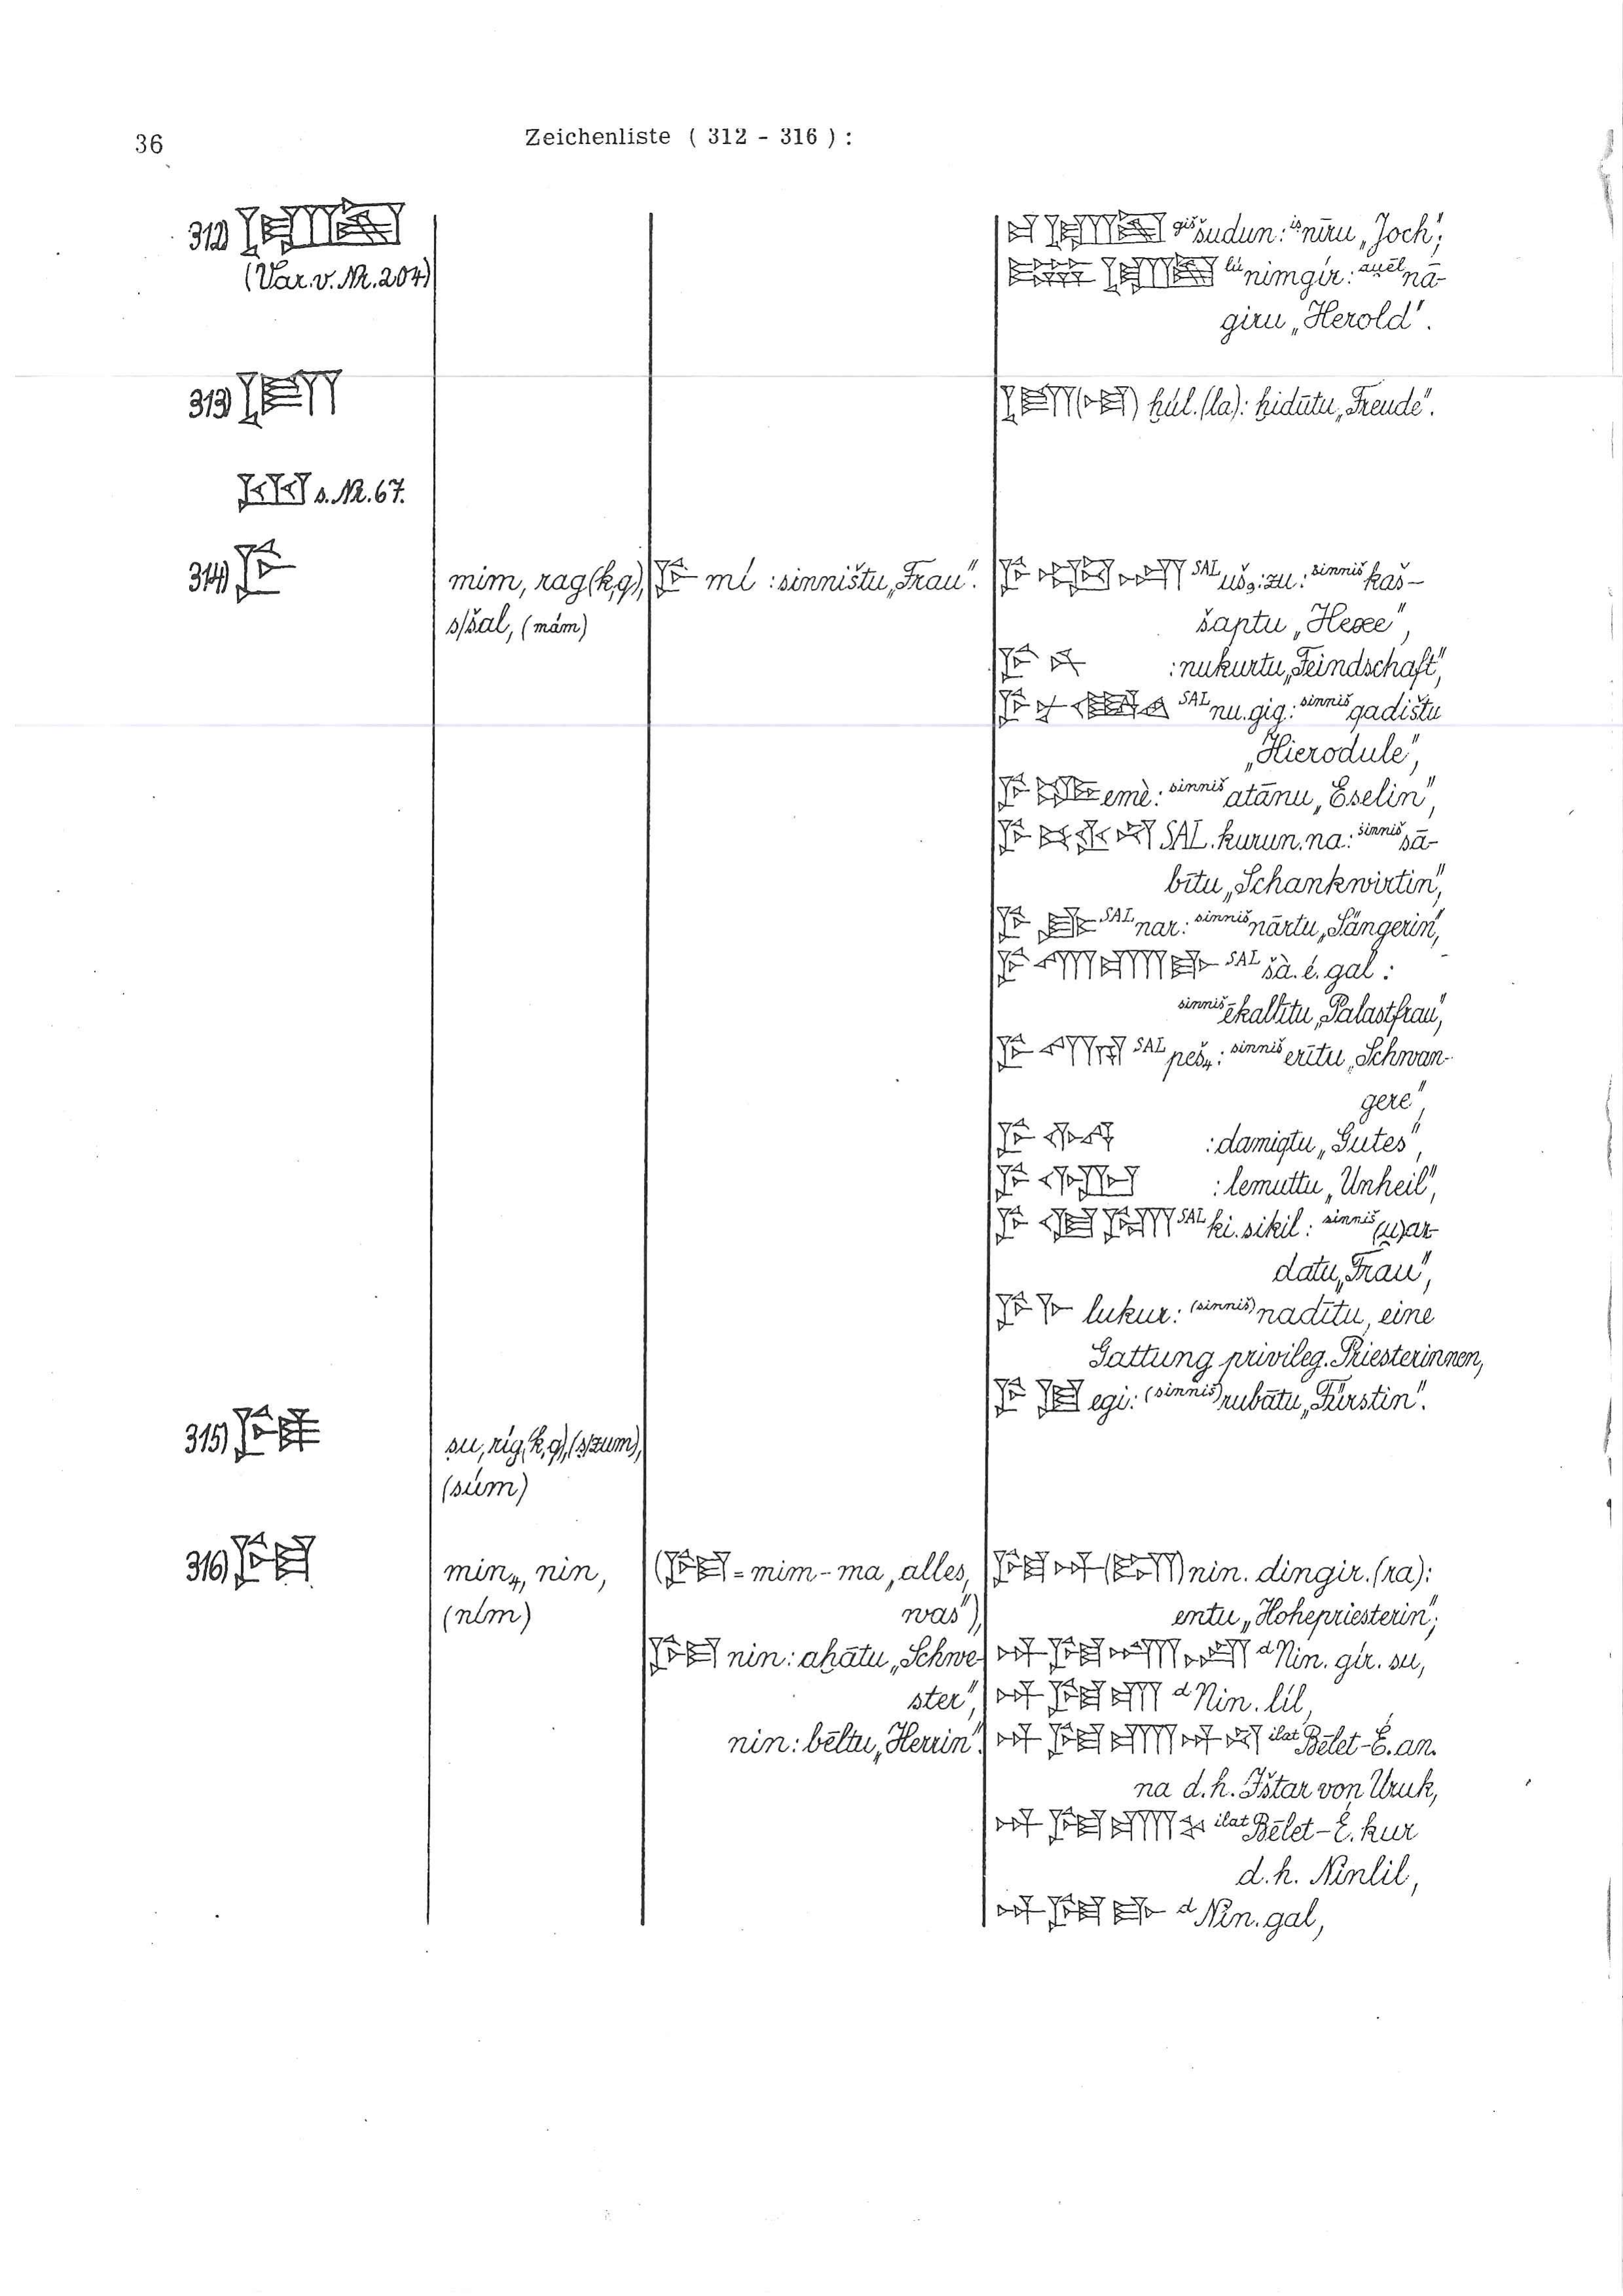 36
Zeichenliste ( 312 - 316 ) :
312)
(Var. v. Nr. 204)
giš šudun: iṣ nīru „Joch",
lú nimgir: au̯ēl nā-
giru „Herold".
313) 𒄾
𒄾(𒆷) ḫúl.(la): ḫidūtu „Freude".
s. Nr. 67.
314) 𒊩
mim, rag(k,q),
s/šal, (mám)
𒊩 mí : sinništu „Frau".
𒊩 SAL uš₉.zu: sinniš kaš-
šaptu „Hexe",
𒊩 𒉽 : nukurtu „Feindschaft",
𒊩 𒉡 𒍼 SAL nu.gig: sinniš qadištu
„Hierodule",
𒊩 emè: sinniš atānu „Eselin",
𒊩 SAL.kurun.na: sinniš sā-
bītu „Schankwirtin",
𒊩 𒈜 SAL nar: sinniš nārtu „Sängerin",
𒊩 𒊮𒂍𒃲 SAL šà.é.gal :
sinniš ēkallītu „Palastfrau",
𒊩 𒊮𒀀 SAL peš₄: sinniš erītu „Schwan-
gere",
𒊩 𒅆𒂟 : damiqtu „Gutes",
𒊩 𒅆𒌨 : lemuttu „Unheil",
𒊩 𒆠 𒂖 SAL ki.sikil: sinniš (u̯)ar-
datu „Frau",
𒊩 𒈨 lukur: (sinniš) nadītu, eine
Gattung privileg. Priesterinnen,
𒊩 𒂠 egi: (sinniš) rubātu „Fürstin".
315) 𒍮
ṣu, ríg(k,q), (s/zum),
(súm)
316) 𒎏
min₄, nin,
(ním)
(𒎏 = mim-ma „alles,
was"),
𒎏 nin: aḫātu „Schwe-
ster",
nin: bēltu „Herrin".
𒎏 𒀭(𒊏) nin. dingir.(ra):
entu „Hohepriesterin";
𒀭 𒎏 𒄈 𒋢 d Nin. gír. su,
𒀭 𒎏 𒆤 d Nin. líl,
𒀭 𒎏 𒂍 𒀭 𒈾 ilat Bēlet-É.an.
na d.h. Ištar von Uruk,
𒀭 𒎏 𒂍 𒆳 ilat Bēlet-É.kur
d.h. Ninlil,
𒀭 𒎏 𒃲 d Nin.gal,